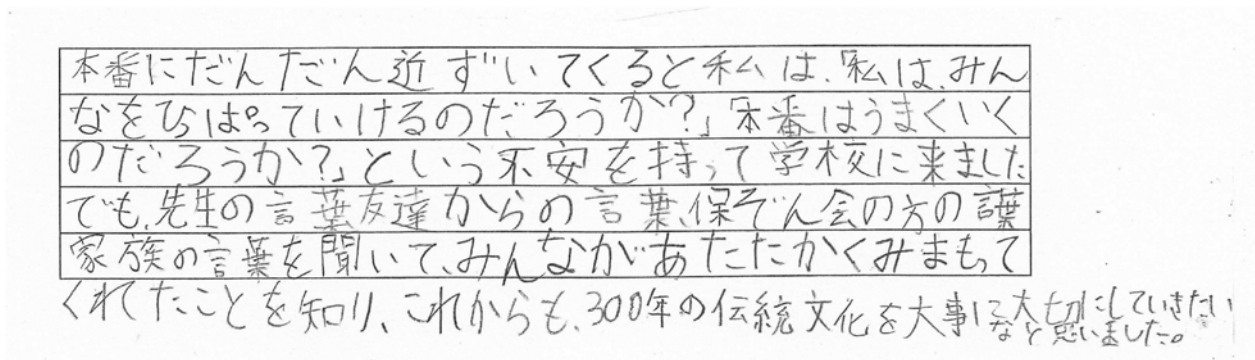 本番にだんだん近ずいてくると私は、「私は、みん
なをひぱっていけるのだろうか?」「本番はうまくいく
のだろうか?」という不安を持って学校に来ました
でも、先生の言葉友達からの言葉、保ぞん会の方の言葉
家族の言葉を聞いて、みんながあたたかくみまもって
くれてたことを知り、これからも、300年の伝統文化を大事に大切にしていきたい
なと思いました。